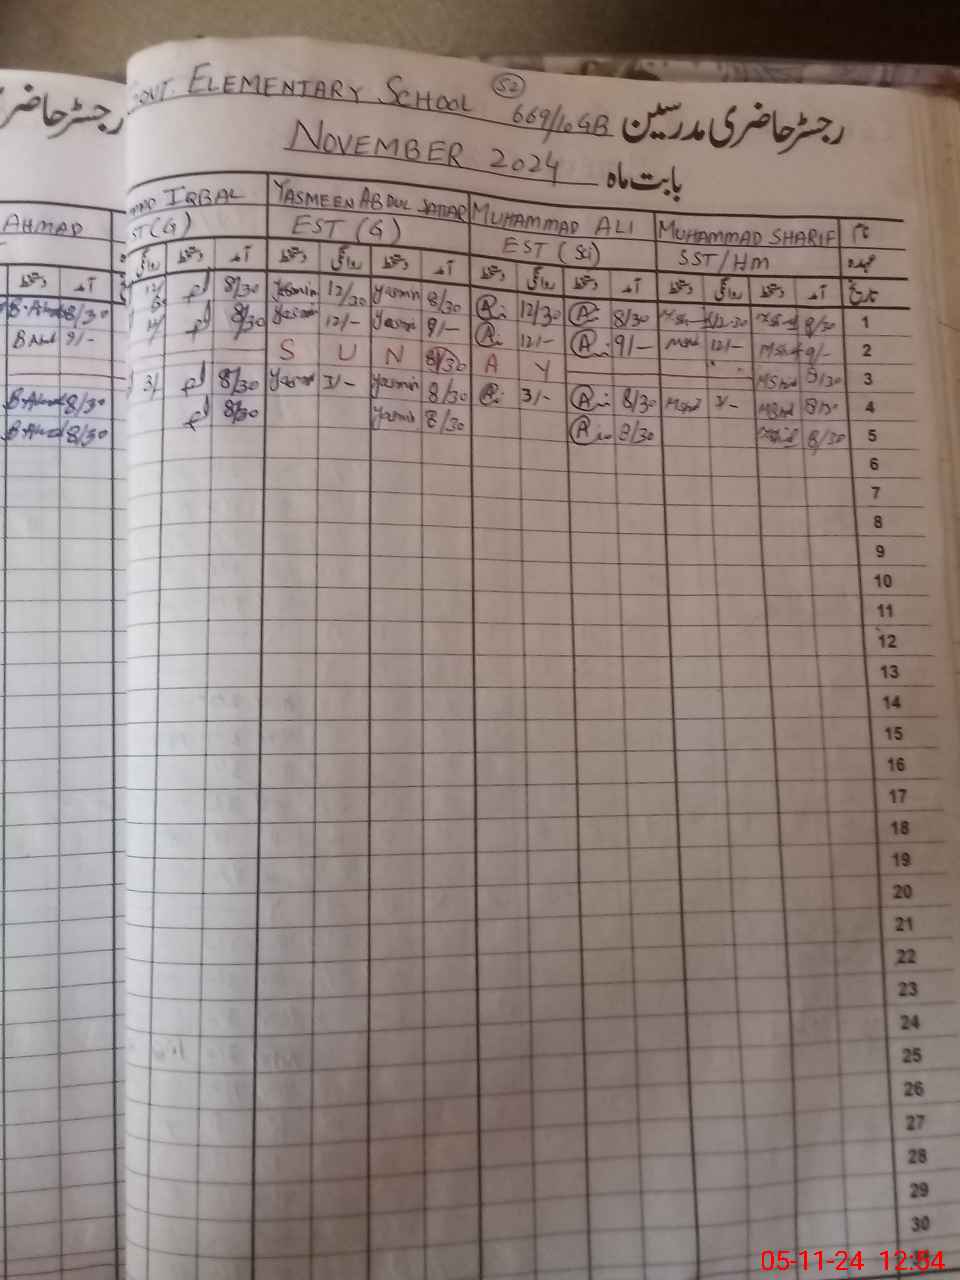 GOVT. ELEMENTARY SCHOOL 52
669/10GB رجسٹر حاضری مدرسین
NOVEMBER 2024 بابت ماہ
رجسٹر حاضری
IQBAL YASMEEN ABDUL SATTAR MUHAMMAD ALI MUHAMMAD SHARIF نام
AHMAD ST(G) EST (G) EST (Sci) SST/HM عہدہ
دستخط آمد روانگی دستخط آمد دستخط روانگی دستخط آمد دستخط روانگی دستخط آمد دستخط روانگی دستخط آمد تاریخ
8/30 8/30 Yasmin 12/30 Yasmin 8/30 12/30 8/30 12-30 8/30 1
9/- 8/30 Yasmin 12/- Yasmin 9/- 12/- 9/- 12/- 9/- 2
S U N 8/30 A Y 8/30 3
8/30 3/ 8/30 Yasmin 3/- Yasmin 8/30 3/- 8/30 3/- 8/30 4
8/30 8/30 Yasmin 8/30 8/30 8/30 5
6
7
8
9
10
11
12
13
14
15
16
17
18
19
20
21
22
23
24
25
26
27
28
29
30
05-11-24 12:54